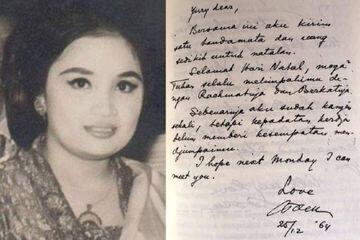 Yurry dear,
Bersama ini aku kirim
satu tandamata dan uang
sedikit untuk natalan.
Selamat Hari Natal, moga2
Tuhan selalu melimpahimu de-
ngan Rachmatnja dan Berkatnja.
Sebenarnja aku sudah kangen
sekali, tetapi kepadatan kerdja
belum memberi kesempatan men-
djumpaimu.
I hope next Monday I can
meet you.
Love
25/12 '64